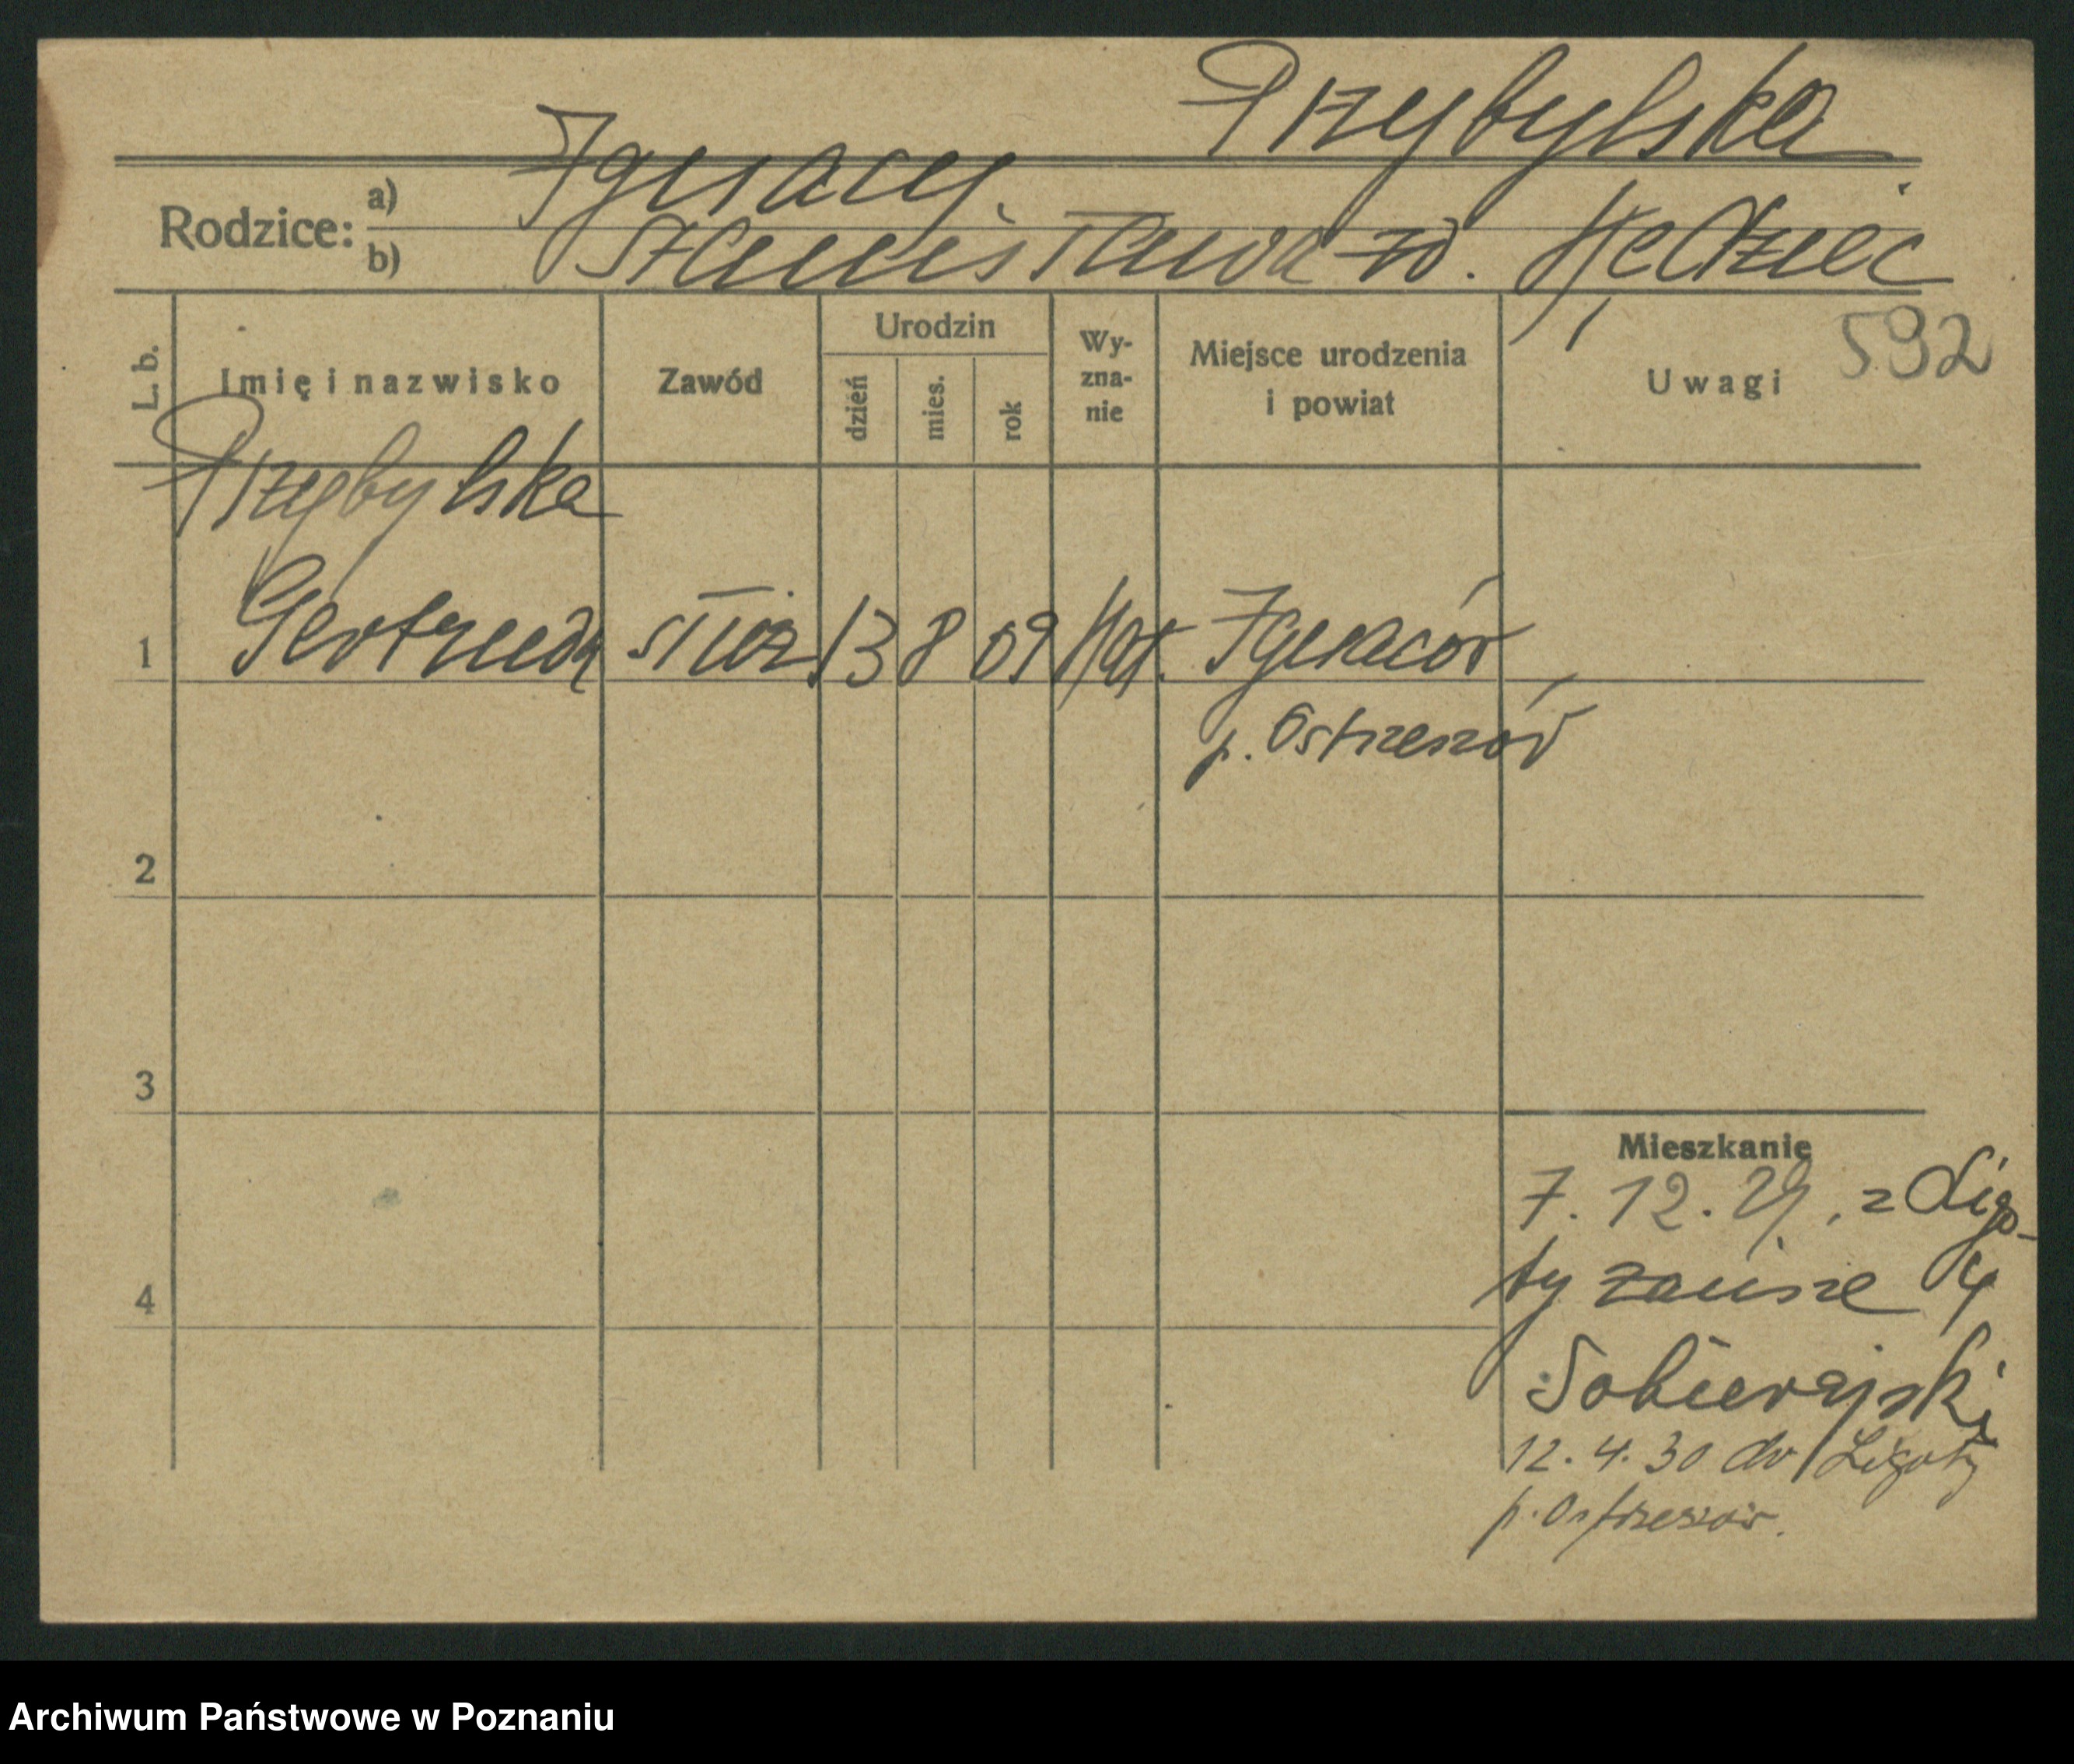 Przybylska
Rodzice: a) Ignacy
b) Stanisława zd.
592
L. b. Imię i nazwisko Zawód Urodzin dzień mies. rok Wy-zna-nie Miejsce urodzenia i powiat Uwagi
Przybylska
1 Gertruda służ. 13 8 09 kat. Ignaców
p. Ostrzeszów
2
3
Mieszkanie
7. 12. 29, z Ligo-
ty
4
Sobierajski
12. 4. 30 do Ligoty
p. Ostrzeszów.
Archiwum Państwowe w Poznaniu